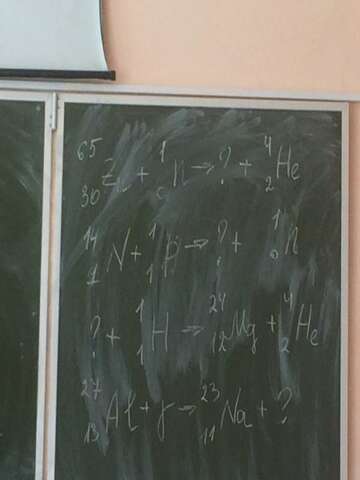 ⁶⁵₃₀Zn + ¹₀n → ? + ⁴₂He
¹⁴₇N + ¹₁p → ? + ¹₀n
? + ¹₁H → ²⁴₁₂Mg + ⁴₂He
²⁷₁₃Al + γ → ²³₁₁Na + ?